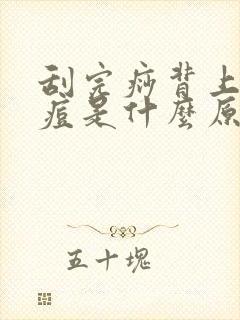 刮完痧背上
痘是什麼原
五十塊